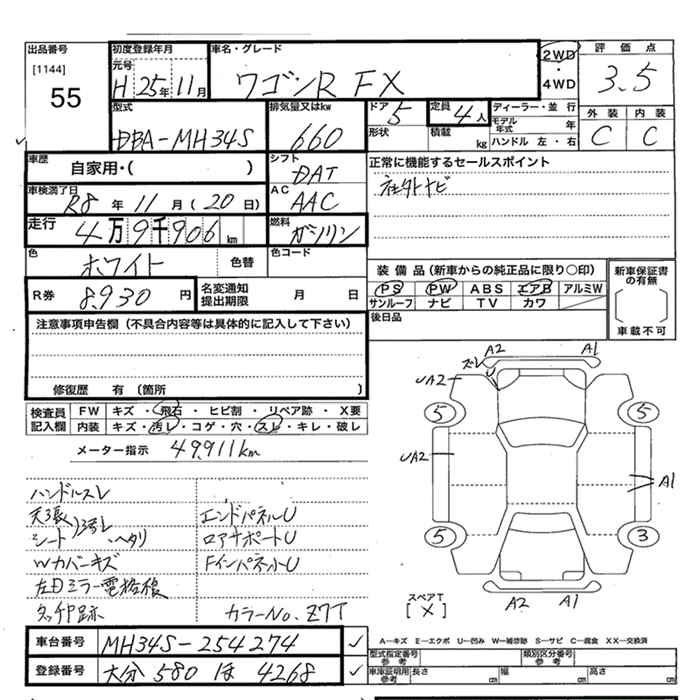 出品番号
[1144]
55
初度登録年月
元号
H 25年 11月
車名・グレード
ワゴンR FX
2WD
・
4WD
評価点
3.5
型式
DBA-MH34S
排気量又はkw
660
ドア 5
形状
定員 4人
積載 kg
ディーラー・並行
モデル年式 年
ハンドル 左・右
外装 内装
C C
車歴
自家用・( )
シフト
DAT
車検満了日
R8年 11月 (20日)
AC
AAC
走行
4万9千906km
燃料
ガソリン
色
ホワイト 色替
色コード
R券 8,930円
名変通知
提出期限 月 日
正常に機能するセールスポイント
社外ナビ
装備品(新車からの純正品に限り○印)
PS PW ABS エアB アルミW
サンルーフ ナビ TV カワ
後日品
新車保証書
の有無
車載不可
注意事項申告欄(不具合内容等は具体的に記入して下さい)
修復歴 有 (箇所 )
検査員
記入欄
FW キズ・飛石・ヒビ割・リペア跡・X要
内装 キズ・汚レ・コゲ・穴・スレ・キレ・破レ
メーター指示 49,911km
ハンドルスレ
天張
シート ヨゴレ ヘタリ
Wカバーキズ
左ドミラー電格
タッチP跡
エンドパネルU
ロアサポートU
FインパネルU
カラーNo. Z7T
ズレ A2 A1
U
UA2
5 5
UA2
A1
5 3
スペアT
[X]
A2 A1
A―キズ E―エクボ U―凹み W―補修跡 S―サビ C―腐食 XX―交換済
車台番号 MH34S-254274
登録番号 大分 580 ほ 4268
型式指定番号
参考
類別区分番号
参考
車庫証明用
参考
長さ cm 幅 cm 高さ cm